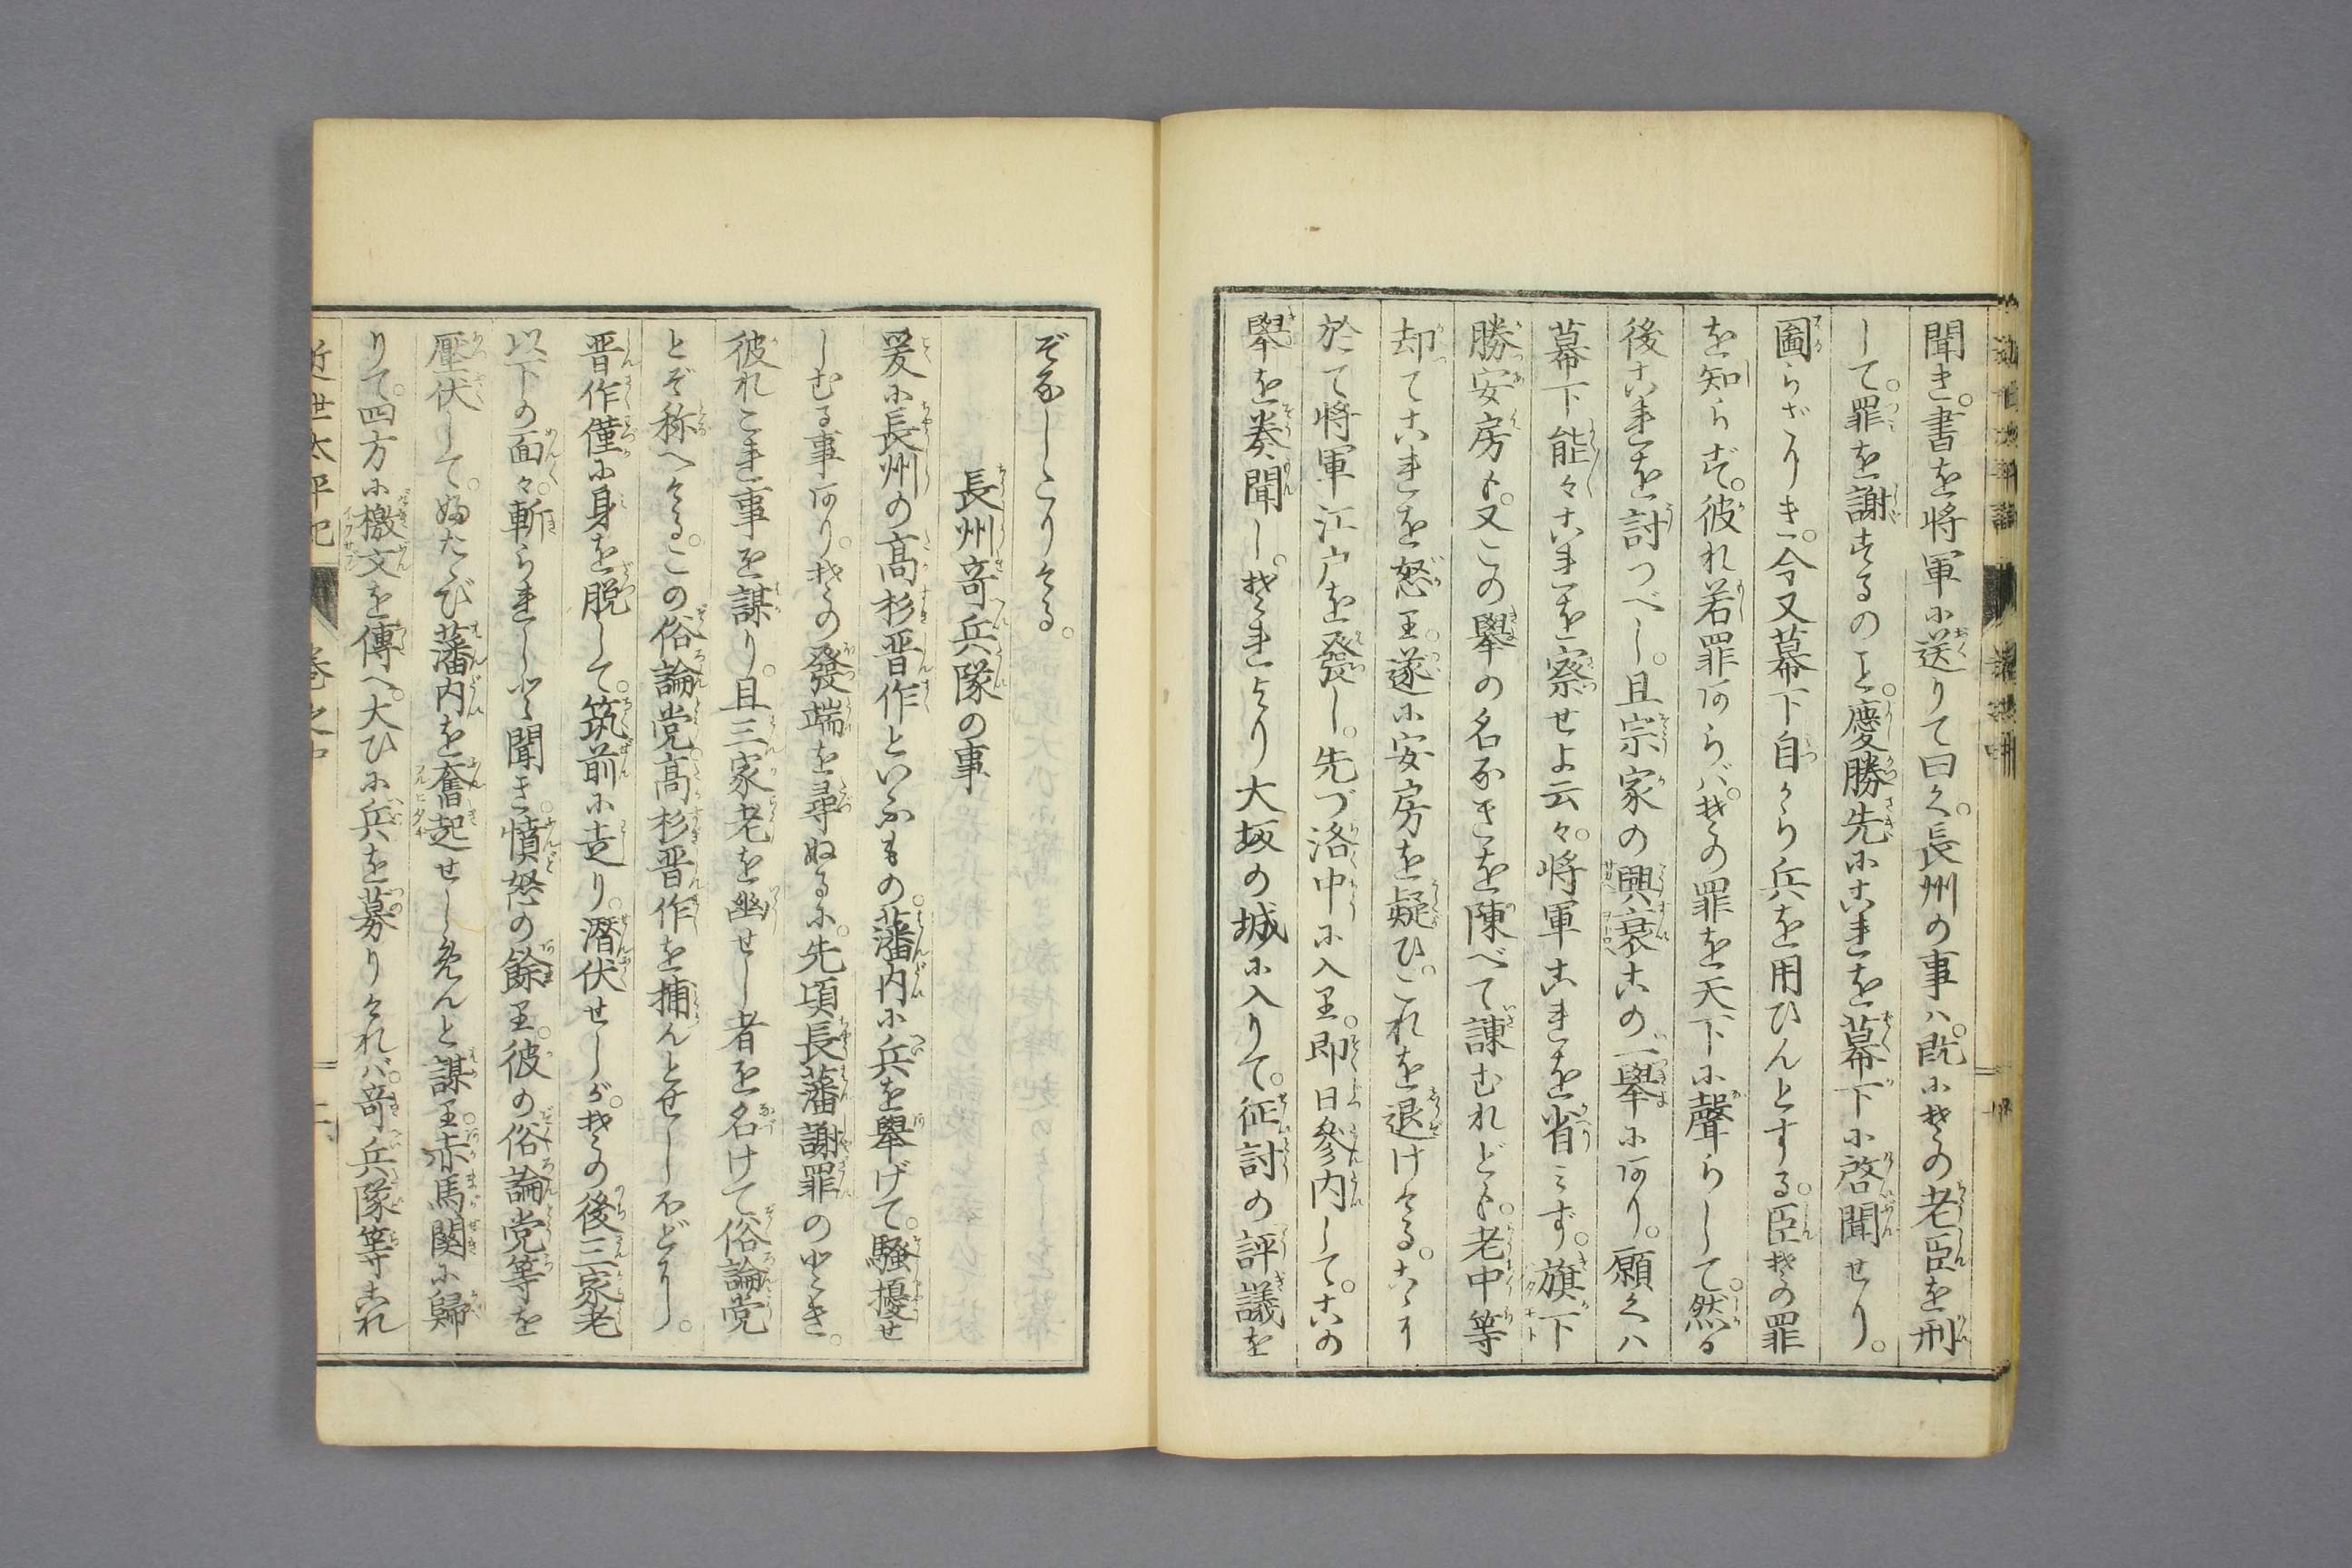 聞き。書を将軍に送りて曰く。長州の事ハ。既にその老臣を刑
して。罪を謝するのと。慶勝先にこれを幕下に啓聞せり。
圖らざりき。今又幕下自から兵を用ひんとする。臣その罪
を知らず。彼れ若罪あらバ。その罪を天下に聲らして。然る
後これを討つべし。且宗家の興衰この一擧にあり。願くハ
幕下能々これを察せよ云々。将軍これを省ミず。旗下
勝安房も。又この擧の名なきを陳べて諌むれども。老中等
却てこれを怒り。遂に安房を疑ひ。これを退けける。こゝに
於て将軍江戸を發し。先づ洛中に入り。即日参内して。この
擧を奏聞し。それより大坂の城に入りて。征討の評議を
ぞなしこりける。
長州奇兵隊の事
爰に長州の高杉晋作といふもの。藩内に兵を擧げて。騒擾せ
しむる事あり。その發端を尋ぬるに。先頃長藩謝罪のとき。
彼れこれ事を謀り。且三家老を幽せし者を名けて俗論党
とぞ称へける。この俗論党。高杉晋作を捕んとせしほどに。
晋作僅に身を脱して。筑前に走り。潜伏せしが。その後三家老
以下の面々。斬られしと聞き。憤怒の餘り。彼の俗論党等を
壓伏して。ふたゝび藩内を奮起せしめんと謀り。赤馬関に歸
りて。四方に檄文を傳へ。大ひに兵を募りけれバ。奇兵隊等これ
近世太平記 巻之中